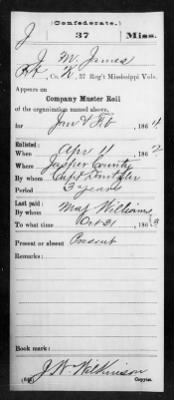 (Confederate.)
J 37 Miss.
J. M. Jones
Pt, Co. K, 37 Reg't Mississippi Vols.
Appears on
Company Muster Roll
of the organization named above,
for Jan & Feb, 1864.
Enlisted:
When Apr 11, 1862
Where Jasper County
By whom Capt
Period 3 years
Last paid:
By whom Maj Williams
To what time Oct 31, 1863
Present or absent Present
Remarks:
Book mark:
J. W. Wilkinson
(642) Copyist.